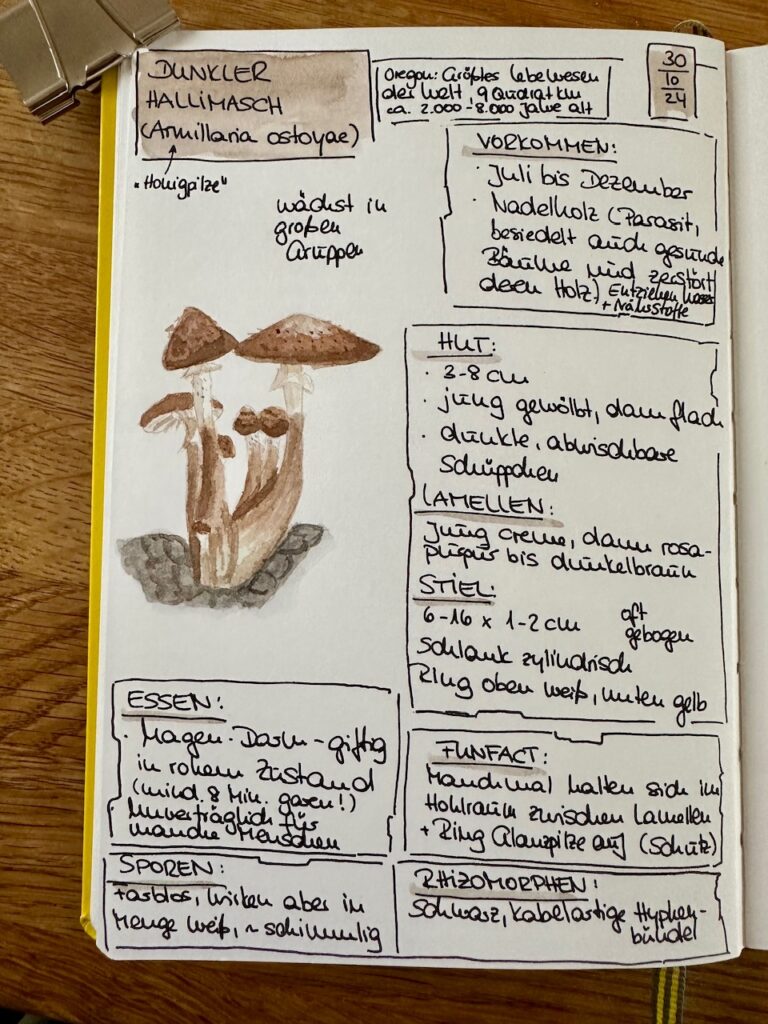 DUNKLER
HALLIMASCH
(Armillaria ostoyae)
"Honigpilze"
Oregon: Größtes Lebewesen
der Welt 9 Quadrat km
ca. 2.000 - 8.000 Jahre alt
30
10
24
wächst in
großen
Gruppen
VORKOMMEN:
· Juli bis Dezember
· Nadelholz (Parasit,
besiedelt auch gesunde
Bäume und zerstört
deren Holz) Entziehen Wasser
+ Nährstoffe
HUT:
· 3-8 cm
· jung gewölbt, dann flach
· dunkle, abwischbare
Schüppchen
LAMELLEN:
jung creme, dann rosa-
purpur bis dunkelbraun
STIEL:
6-16 x 1-2 cm oft
gebogen
Schlank zylindrisch
Ring oben weiß, unten gelb
ESSEN:
· Magen-Darm-giftig
in rohem Zustand
(mind. 8 Min. garen!)
Unverträglich für
manche Menschen
FUNFACT:
Manchmal halten sich im
Hohlraum zwischen Lamellen
+ Ring auf (Schutz)
SPOREN:
Farblos, wirken aber in
Menge weiß, ~ schimmlig
RHIZOMORPHEN:
Schwarz, kabelartige Hyphen-
bündel